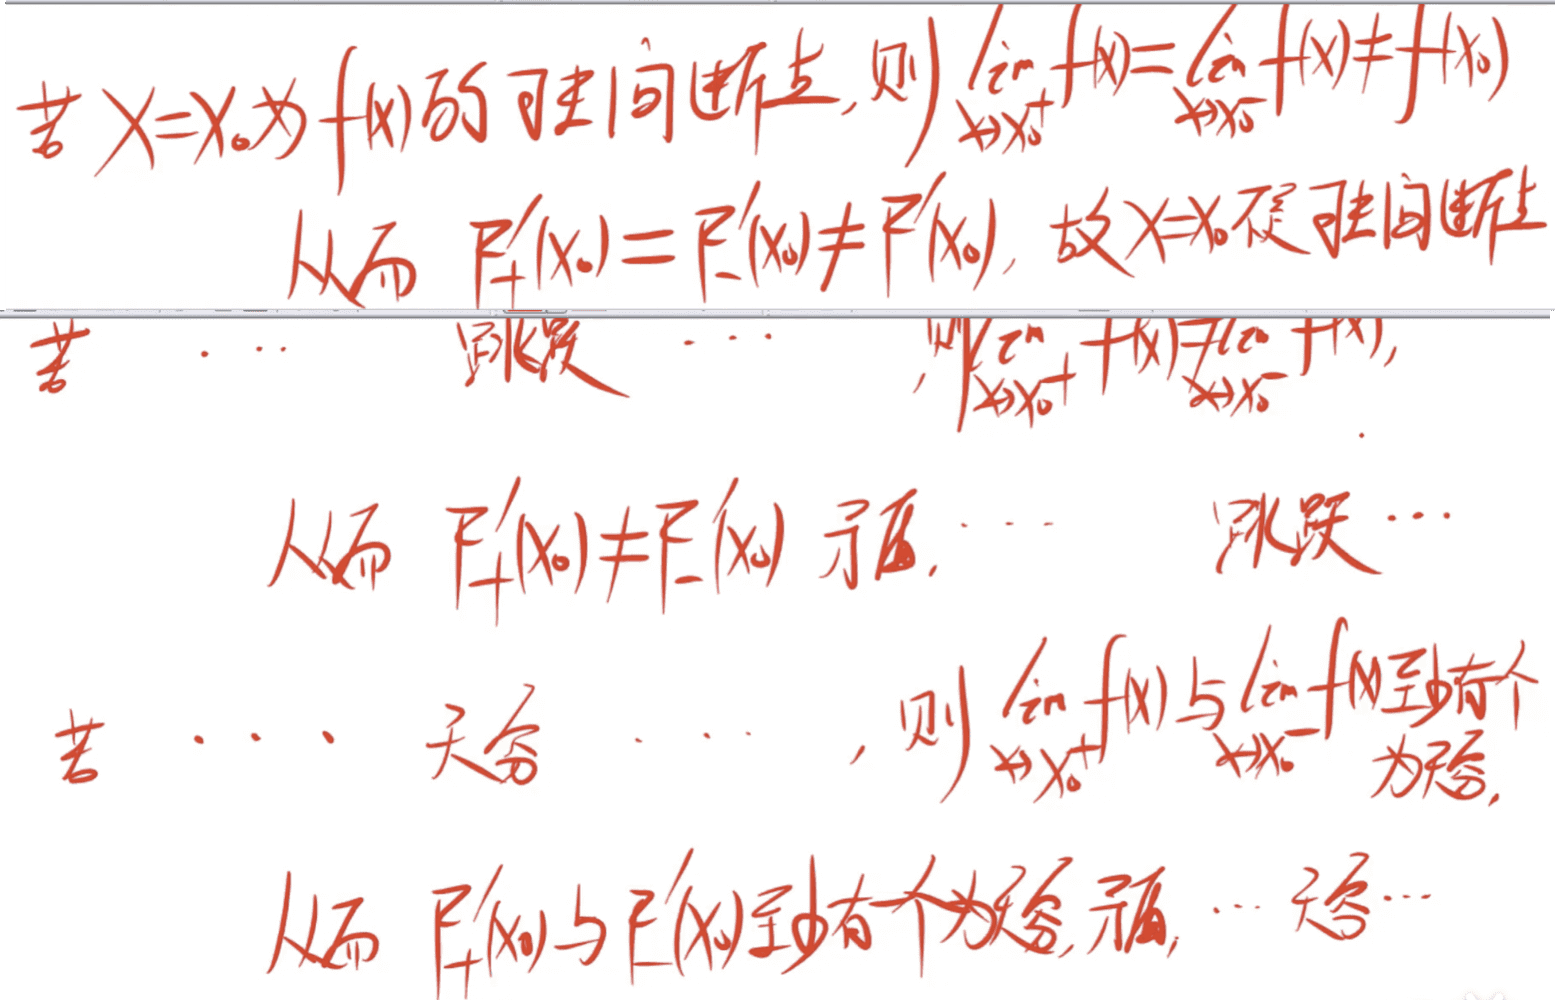 若 x=x₀为 f(x)的可去间断点,则 lim x→x₀⁺ f(x)=lim x→x₀⁻ f(x)≠f(x₀)
从而 F₊′(x₀)=F₋′(x₀)≠F′(x₀), 故x=x₀不是可去间断点
若 ··· 跳跃 ··· ,则 lim x→x₀⁺ f(x)≠lim x→x₀⁻ f(x),
从而 F₊′(x₀)≠F₋′(x₀) 矛盾. ··· 跳跃 ···
若 ··· 无穷 ··· ,则 lim x→x₀⁺ f(x)与 lim x→x₀⁻ f(x)至少有个为无穷,
从而 F₊′(x₀)与F₋′(x₀)至少有一个为无穷,矛盾, ··· 无穷 ···